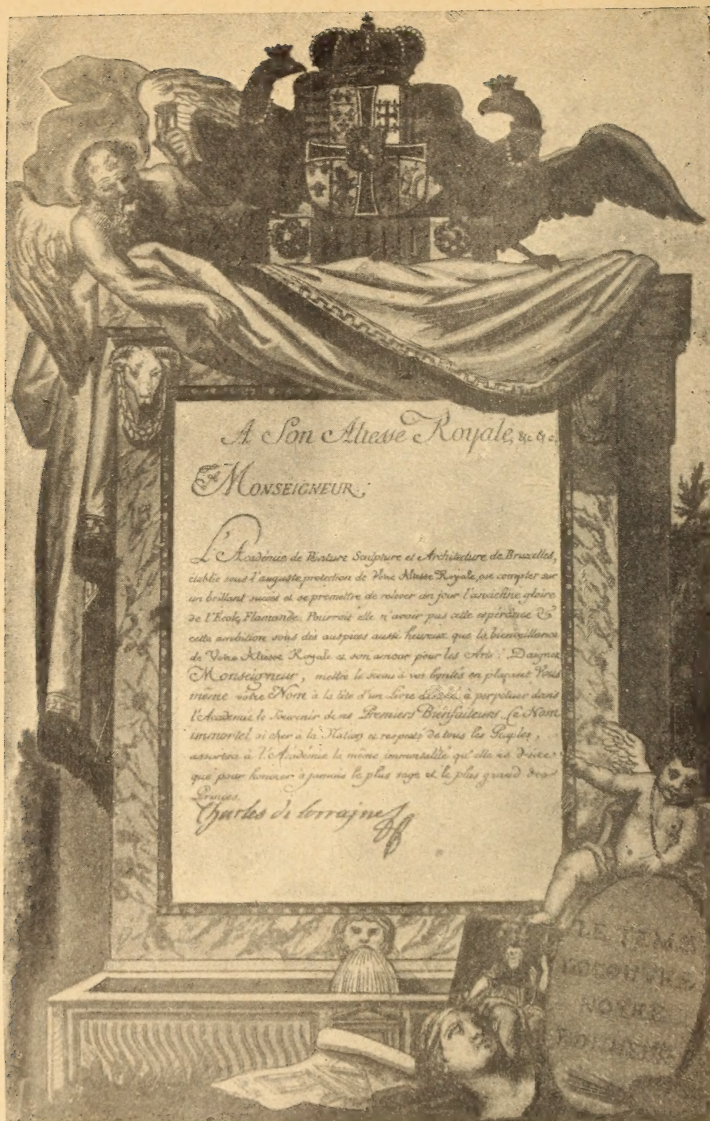 A Son Altesse Royale, &c &c,
MONSEIGNEUR,
L'Académie de Peinture Sculpture et Architecture de Bruxelles,
établie sous l'auguste protection de Votre Altesse Royale, ose compter sur
un brillant succès et se promettre de relever un jour l'ancienne gloire
de l'École Flamande. Pourroit elle n'avoir pas cette espérance &
cette ambition sous des auspices aussi heureux que la bienveillance
de Votre Altesse Royale et son amour pour les Arts? Daignez
Monseigneur, mettre le sceau à vos bontés en plaçant Vous
même votre Nom à la tête d'un Livre destiné à perpétuer dans
l'Académie le Souvenir de ses Premiers Bienfaiteurs. Ce Nom
immortel si cher à la Nation et respecté de tous les Peuples,
assurera à l'Académie la même immortalité qu'elle ne désire
que pour honorer à jamais le plus sage et le plus grand des
Princes.
Charles de Lorraine
LE TEMS